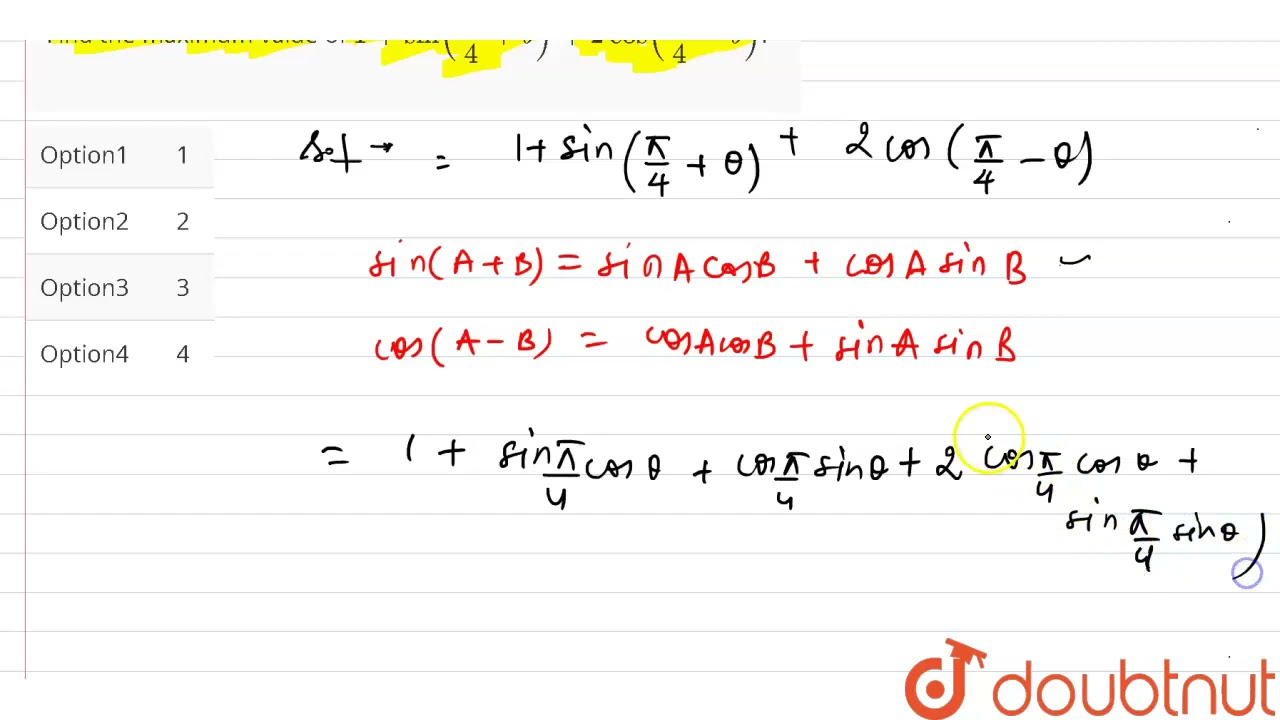 Find the maximum value of 1 + sin(π/4 + θ) + 2 cos(π/4 − θ).
Option1 1
Option2 2
Option3 3
Option4 4
Sol → = 1 + sin(π/4 + θ) + 2 cos(π/4 − θ)
sin(A+B) = sin A cos B + cos A sin B
cos(A−B) = cos A cos B + sin A sin B
= 1 + sin π/4 cos θ + cos π/4 sin θ + 2 cos π/4 cos θ +
sin π/4 sin θ)
doubtnut